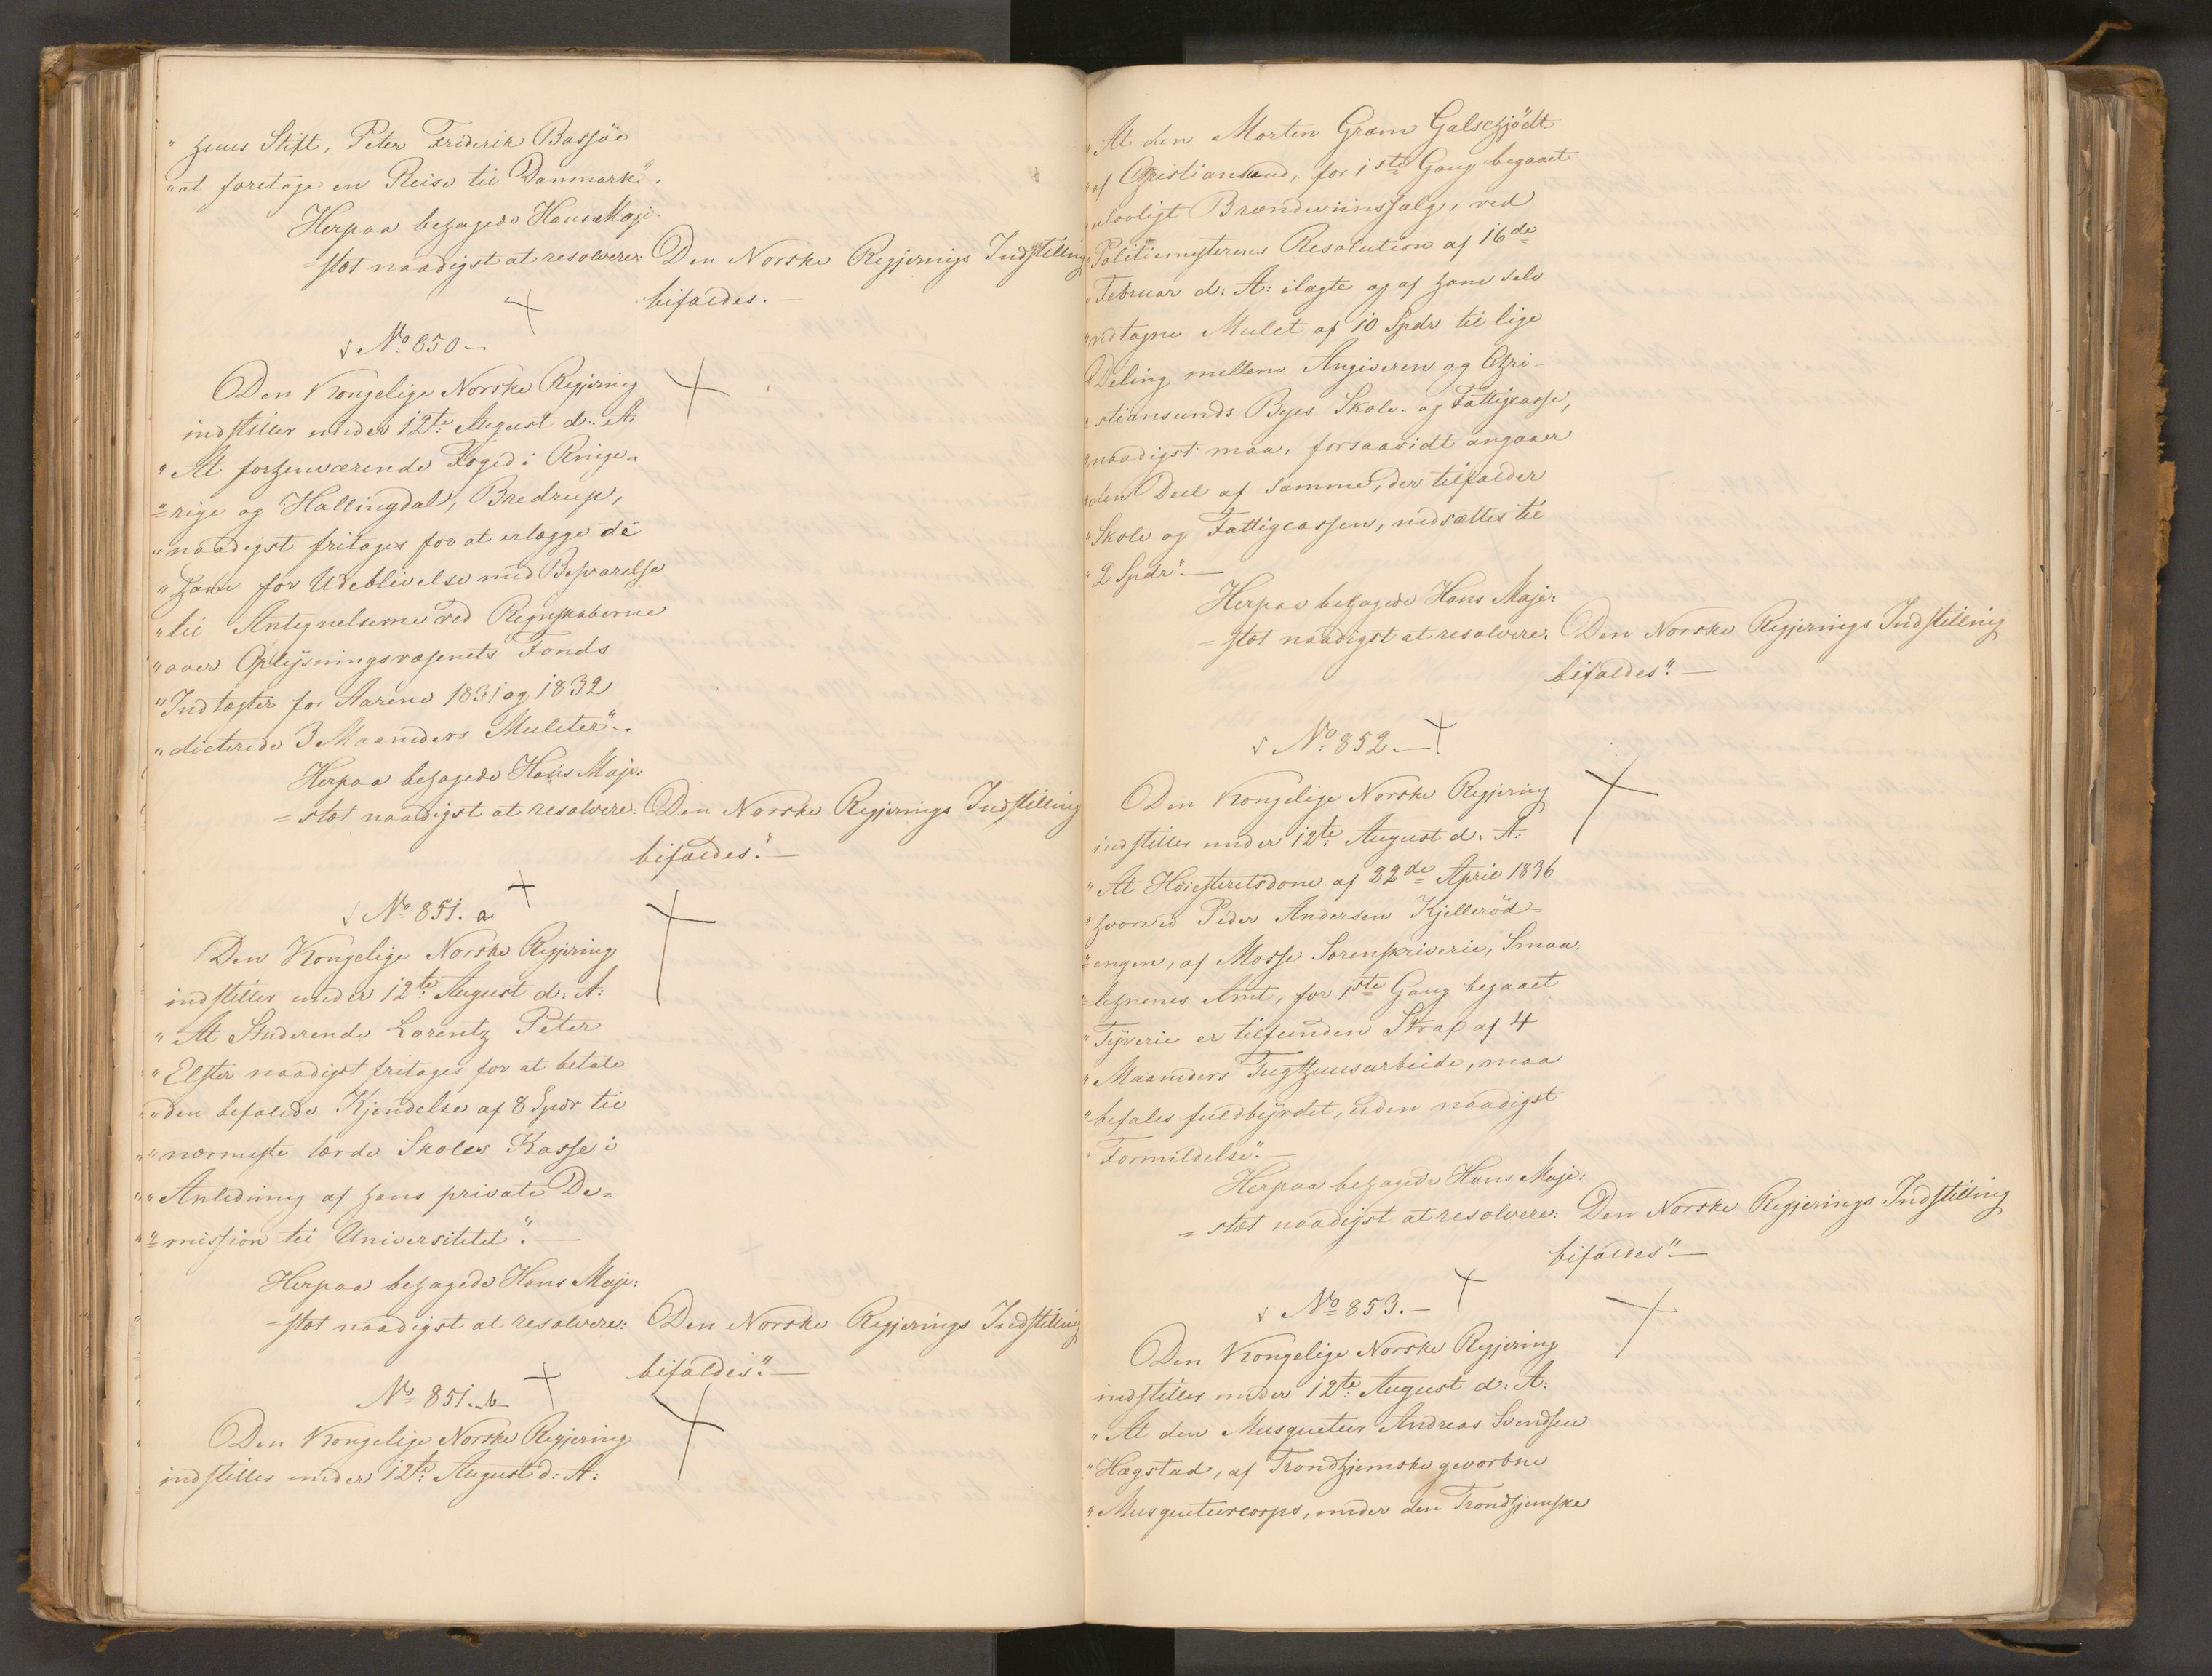 " huus Stift, Peter Friderik Bassøe
" at foretage en Reise til Danmark".
Herpaa behagede Hans Maje-
=stæt naadigst at resolvere: Den Norske Regjerings Indstilling
bifaldes. —
No 850 —
Den Kongelige Norske Regjering
indstiller under 12te August d: A:
" At forhenværende Foged i Ringe-
"=rige og Hallingdal, Bredrup,
" naadigst fritages for at erlægge de
" ham for Udeblivelse med Besvarelse
" til Antegnelserne ved Regnskaberne
" over Oplysningsvæsenets Fonds
" Indtægter for Aarene 1831 og 1832
" dicterede 3 Maaneders Mulcter". —
Herpaa behagede Hans Maje:
=stæt naadigst at resolvere: Den Norske Regjerings Indstilling
bifaldes". —
No 851. a
Den Kongelige Norske Regjering
indstiller under 12te August d: A:
" At Studerende Lorentz Peter
" Elster naadigst fritages for at betale
" den befalede Kjendelse af 8 Spdr til
" nærmeste lærde Skoles Kasse i
" Anledning af hans private De=
"=mission til Universitetet". —
Herpaa behagede Hans Maje:
=stæt naadigst at resolvere: Den Norske Regjerings Indstilling
bifaldes". —
No 851. b
Den Kongelige Norske Regjering
indstiller under 12te August d: A:
" At den Morten Gram Galschjödt
" af Christiansund, for 1ste Gang begaaet
" ulovligt Brændeviinssalg, ved
" Politiemesterens Resolution af 16de
" Februar d: A: ilagte og af ham selv
" vedtagne Mulct af 10 Spdr til lige
" Deling mellem Angiveren og Chri-
"=stiansunds Byes Skole- og Fattigcasse,
" naadigst maa, forsaavidt angaaer
" den Deel af samme, der tilfalder
" Skole og Fattigcassen, nedsættes til
" 2 Spdr". —
Herpaa behagede Hans Maje:
=stæt naadigst at resolvere: Den Norske Regjerings Indstilling
bifaldes". —
No 852 —
Den Kongelige Norske Regjering
indstiller under 12te August d: A:
" At Høiesteretsdom af 22de April 1836
" hvorved Peder Andersen Kjelleröd=
"=engen, af Mosse Sorenskriverie, Smaa:
"=lehnenes Amt, for 1ste Gang begaaet
" Tyverie er tilfunden Straf af 4
" Maaneders Tugthuusarbeide, maa
" befales fuldbyrdet, uden naadigst
" Formildelse". —
Herpaa behagede Hans Maje:
=stæt naadigst at resolvere: Den Norske Regjerings Indstilling
bifaldes". —
No 853. —
Den Kongelige Norske Regjering
indstiller under 12te August d: A:
" At den Musqueteer Andreas Svendsen
" Hægstad, af Trondhjemske gevorbne
" Musqueteercorps, under den Trondhjemske